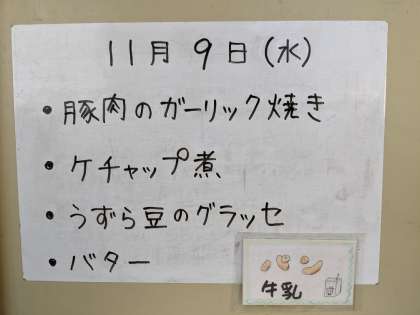 11月 9日(水)
・豚肉のガーリック焼き
・ケチャップ煮
・うずら豆のグラッセ
・バター
パン
牛乳